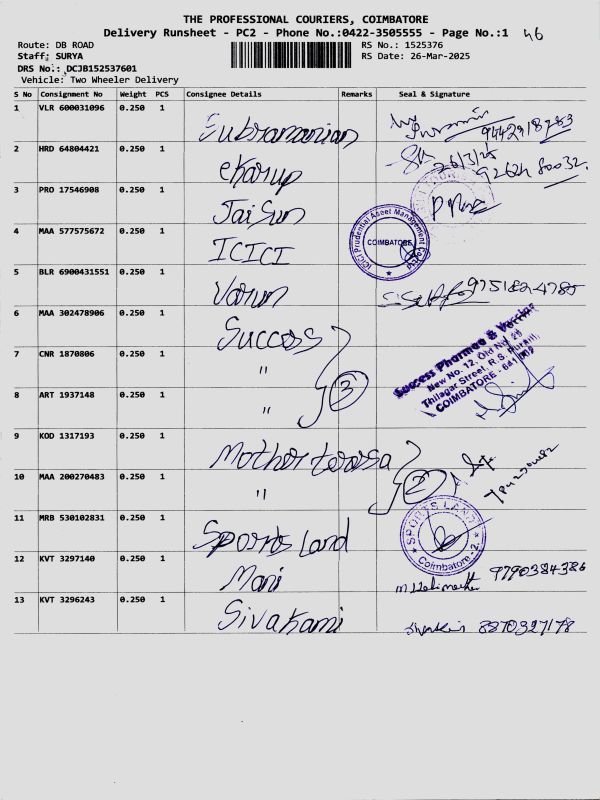 THE PROFESSIONAL COURIERS, COIMBATORE
Delivery Runsheet - PC2 - Phone No.:0422-3505555 - Page No.:1 46
Route: DB ROAD RS No.: 1525376
Staff: SURYA RS Date: 26-Mar-2025
DRS No.: DCJB152537601
Vehicle: Two Wheeler Delivery
S No Consignment No Weight PCS Consignee Details Remarks Seal & Signature
1 VLR 600031096 0.250 1 Subramanian 9442918783
2 HRD 64804421 0.250 1 ekarup 26/3/25 92624 80032.
3 PRO 17546908 0.250 1 Jai Sun
4 MAA 577575672 0.250 1 ICICI ICICI Prudential Asset Management Co Ltd COIMBATORE
5 BLR 6900431551 0.250 1 Varun 9751824785
6 MAA 302478906 0.250 1 Success Success Pharmaa & Vaccine
New No. 12, Old No. 29
7 CNR 1870806 0.250 1 " 3 Thilagar Street, R.S. Puram,
COIMBATORE - 641 002
8 ART 1937148 0.250 1 "
9 KOD 1317193 0.250 1 Mother teresa
10 MAA 200270483 0.250 1 " 2
11 MRB 530102831 0.250 1 Sports Land SPORTS LAND Coimbatore-2.
12 KVT 3297140 0.250 1 Mani 9790384386
13 KVT 3296243 0.250 1 Sivakami 8870327178